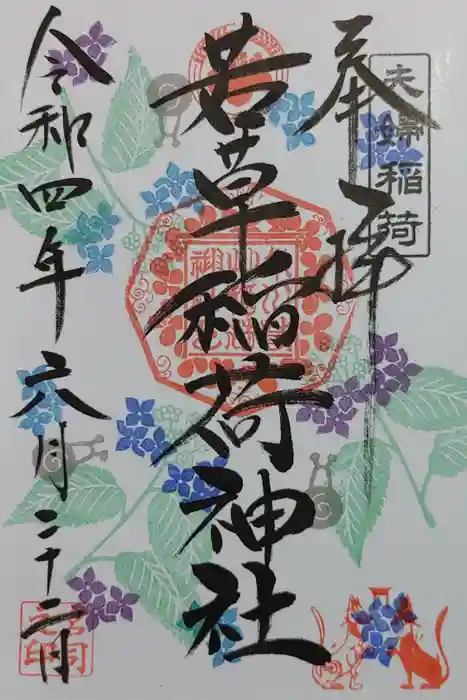 奉拝
夫婦稲荷
若草稲荷神社
令和四年六月二十二日
宮司之印